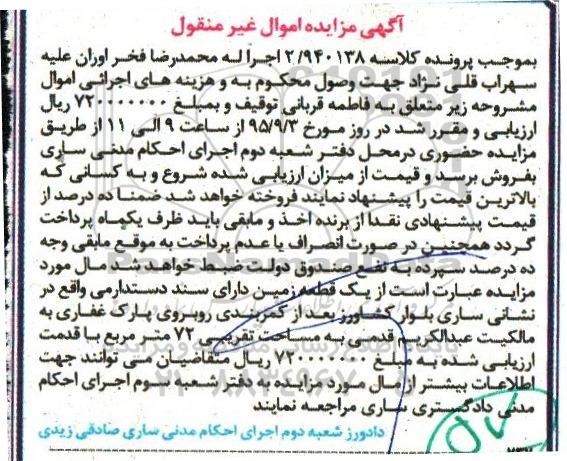 آگهی مزایده اموال غیر منقول
بموجب پرونده کلاسه ۲/۹۴۰۱۳۸ اجرا له محمدرضا فخر اوران علیه
سهراب قلی نژاد جهت وصول محکوم به و هزینه های اجرائی اموال
مشروحه زیر متعلق به فاطمه قربانی توقیف و بمبلغ ۷۲۰۰۰۰۰۰۰ ریال
ارزیابی و مقرر شد در روز مورخ ۹۵/۹/۳ از ساعت ۹ الی ۱۱ از طریق
مزایده حضوری درمحل دفتر شعبه دوم اجرای احکام مدنی ساری
بفروش برسد و قیمت از میزان ارزیابی شده شروع و به کسانی که
بالاترین قیمت را پیشنهاد نمایند فروخته خواهد شد ضمنا ده درصد از
قیمت پیشنهادی نقدا از برنده اخذ و مابقی باید ظرف یکماه پرداخت
گردد همچنین در صورت انصراف یا عدم پرداخت به موقع مابقی وجه
ده درصد سپرده به نفع صندوق دولت ضبط خواهد شد مال مورد
مزایده عبارت است از یک قطعه زمین دارای سند دستدارمی واقع در
نشانی ساری بلوار کشاورز بعد از کمربندی روبروی پارک غفاری به
مالکیت عبدالکریم قدمی به مساحت تقریبی ۷۲ متر مربع با قدمت
ارزیابی شده به مبلغ ۷۲۰۰۰۰۰۰۰ ریال متقاضیان می توانند جهت
اطلاعات بیشتر از مال مورد مزایده به دفتر شعبه سوم اجرای احکام
مدنی دادگستری ساری مراجعه نمایند
دادورز شعبه دوم اجرای احکام مدنی ساری صادقی زیدی